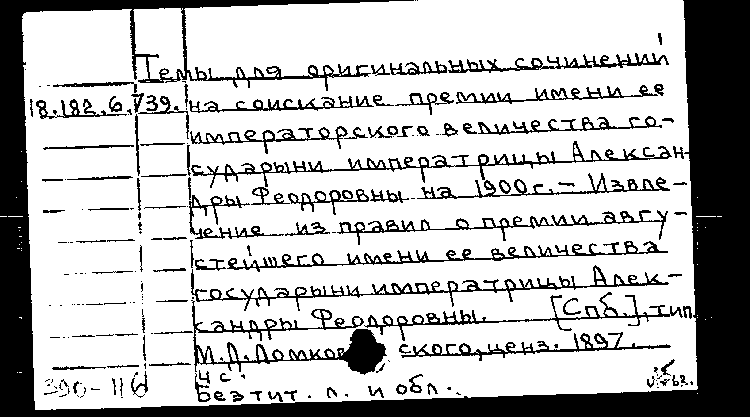 Темы для оригинальных сочинений
18.182.6.739. на соискание премии имени ее
императорского величества го-
сударыни императрицы Алексан-
дры Феодоровны на 1900 г. – Извле-
чение из правил о премии авгу-
стейшего имени ее величества
государыни императрицы Алек-
сандры Феодоровны. [Спб.], тип.
М.Д. Ломковского, ценз. 1897.
4 с.
390-116 Без тит. л. и обл.